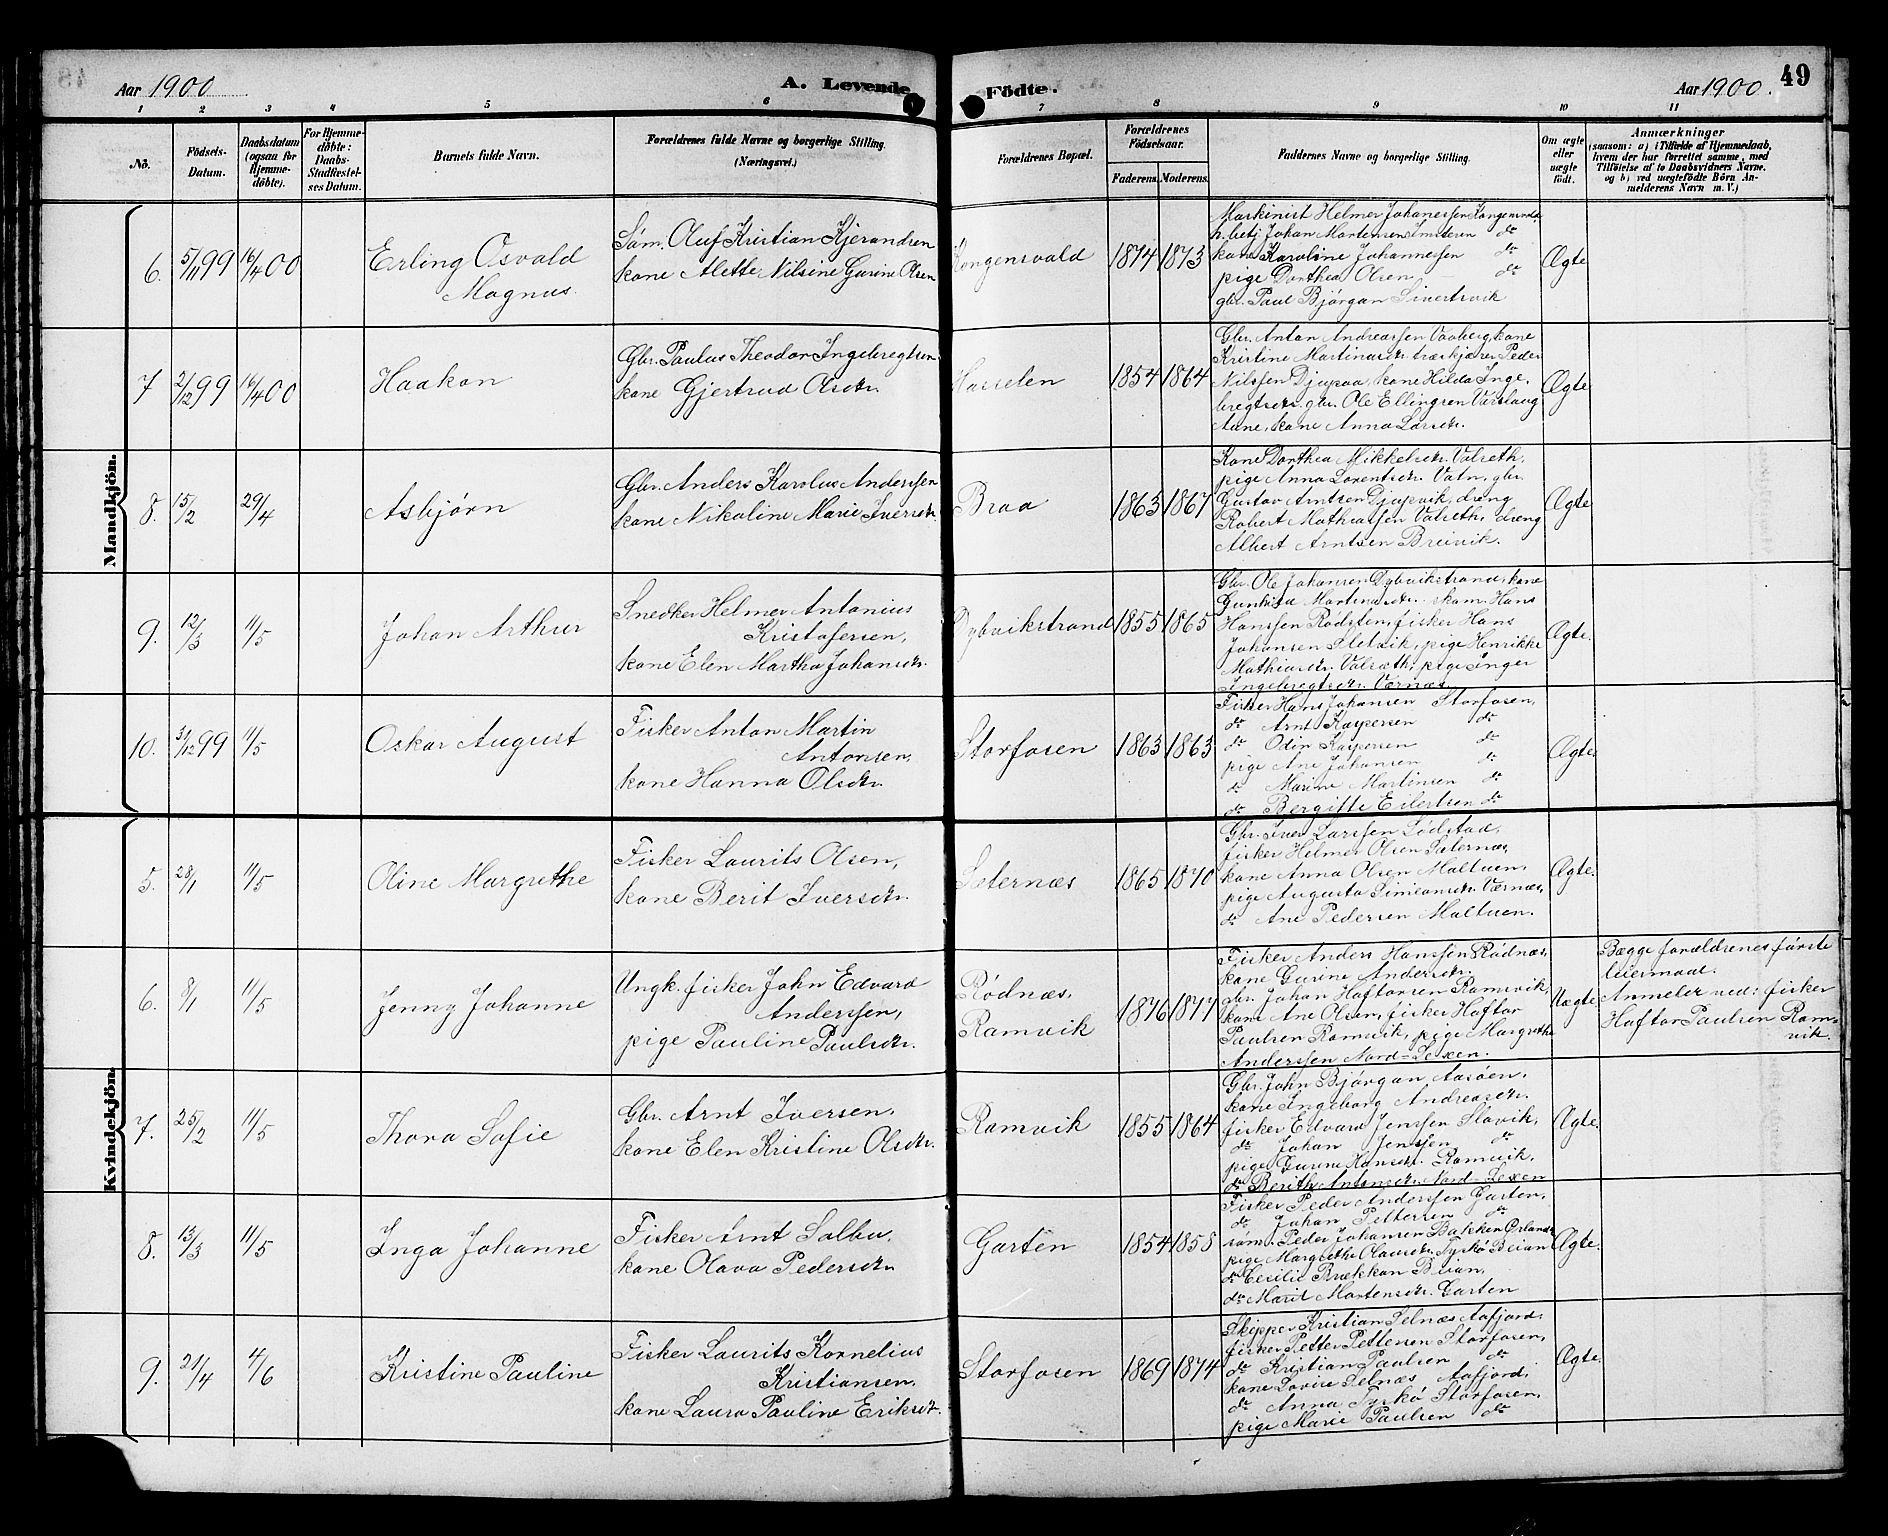 Aar 1900
A. Levende
Fødte.
Aar 1900.
49
1 2 3 4 5 6 7 8 9 10 11
No.
Fødsels-
Datum.
Daabsdatum
(ogsaa for
Hjemme-
døbte).
For Hjemme-
døbte:
Daabs-
Stadfæstel-
ses Datum.
Barnets fulde Navn.
Forældrenes fulde Navne og borgerlige Stilling.
(Næringsvei.)
Forældrenes Bopæl.
Forældrenes
Fødselsaar.
Faderens. Moderens.
Faddernes Navne og borgerlige Stilling.
Om ægte
eller
uægte
født.
Anmærkninger
(saasom: a) i Tilfælde af Hjemmedaab,
hvem der har forrettet samme, med
Tilføielse af to Daabsvidners Navne,
og b) ved uægtefødte Børn An-
melderens Navn m. V.)
Mandkjön.
6. 5/11 99 16/4 00
Erling Osvald
Magnus
Søm. Oluf Kristian Kjerandsen
kone Alette Nilsine Gurine Olsen
Kongensvold
1874 1873
Maskinist Helmer Johanessen Kongensvold
h.betj Johan Martensen do
kone Karoline Johannessen do
pige Dorthea Olsen do
gbr. Paul Bjørgan Sivertsvik
Ægte
7 2/12 99 16/4 00
Haakon
Gbr. Paulus Theodor Ingebregtsen
kone Gjertrud Olsdtr.
Hasselen
1854 1864
Gbr. Anton Andreassen Vaaberg, kone
Kristine Martinasdtr. træskjærer Peder
Nilssen Djupaa, kone Hilda Inge-
bregtsdtr. gbr. Ole Ellingsen
Aune, kone Anna Larsdtr.
Ægte
8. 15/2 29/4
Asbjørn
Gbr. Anders Karolus Anderssen
kone Nikoline Marie Iversdtr.
Braa
1863 1867
Kone Dorthea Mikkelsdtr. Valseth,
pige Anna Lorentsdtr. Vatn, gbr.
Gustav Arntsen Djupvik, dreng
Robert Mathiassen Valseth, dreng
Albert Arntsen Breivik.
Ægte.
9. 12/3 11/5
Johan Arthur
Snedker Helmer Antonius
Kristofersen,
kone Elen Martha Johansdtr.
Dybvikstrand
1855 1865
Gbr. Ole Johansen Dybvikstrand, kone
Gunhild Martinasdtr. skom. Hans
Hanssen Rødsten, fisker Hans
Johansen Sletvik, pige Henrikke
Mathiasdtr. Valseth, pige Inger
Ingebregtsdtr. Værnes.
Ægte.
10. 31/12 99 11/5
Oskar August
Fisker Anton Martin
Antonsen,
kone Hanna Olsdtr.
Storfosen
1863 1863
Fisker Hans Johansen Storfosen,
do Arnt Kaspersen do
do Odin Kaspersen do
pige Ane Johansen do
do Marine Martinsen do
do Bergitte Eilertsen do
Ægte.
Kvindekjön.
5. 28/1 11/5
Oline Margrethe
Fisker Laurits Olsen,
kone Berit Iversdtr.
Sæternæs
1865 1870
Gbr. Iver Larssen Lødstad,
fisker Helmer Olsen Sæternæs,
kone Anna Olsen Maltuen,
pige Augusta Simeonsdtr. Værnæs,
do Ane Pedersen Maltuen.
Ægte.
6. 8/1 11/5
Jenny Johanne
Ungk. fisker John Edvard
Anderssen,
pige Pauline Paulsdtr.
Rødnæs,
Ramvik
1876 1877
Fisker Anders Hanssen Rødnæs,
kone Gurine Andersdtr.
gbr. Johan Haftorsen Ramsvik
kone Ane Olsen, fisker Haftor
Paulsen Ramvik, pige Margrethe
Anderssen Nord-Lexen.
Uægte
Begge forældrenes første
leiermaal.
Anmelder ved: fisker
Haftor Paulsen Ram-
vik.
7. 25/2 11/5
Thora Sofie
Gbr. Arnt Iversen,
kone Elen Kristine Olsdtr.
Ramvik
1855 1864
Gbr. John Bjørgan Aasøen,
kone Ingeborg Andreasdtr.
fisker Edvard Jenssen Slavik,
do Johan Jenssen do
pige Gurine Hansdtr. Ramvik,
do Berith Antonsdtr. Nord-Lexen
Ægte.
8. 13/3 11/5
Inga Johanne
Fisker Arnt Salbu,
kone Olava Pedersdtr.
Garten
1854 1858
Fisker Peder Anderssen Garten,
do Johan Pettersen do
søm. Peder Johansen Bakken Ørland
pige Margrethe Olausdtr. Tyskø Beian
do Cecilie Brækkan Beian,
do Marit Mortensdtr. Garten
Ægte.
9. 21/4 4/6
Kristine Pauline
Fisker Laurits Kornelius
Kristiansen,
kone Laura Pauline Eriksdtr.
Storfosen
1869 1874
Skipper Kristian Selnæs Aafjord,
fisker Petter Pettersen Storfosen,
do Kristian Paulsen do
kone Lovise Selnæs Aafjord,
do Anna Tyskø Storfosen,
pige Marie Paulsen do
Ægte.